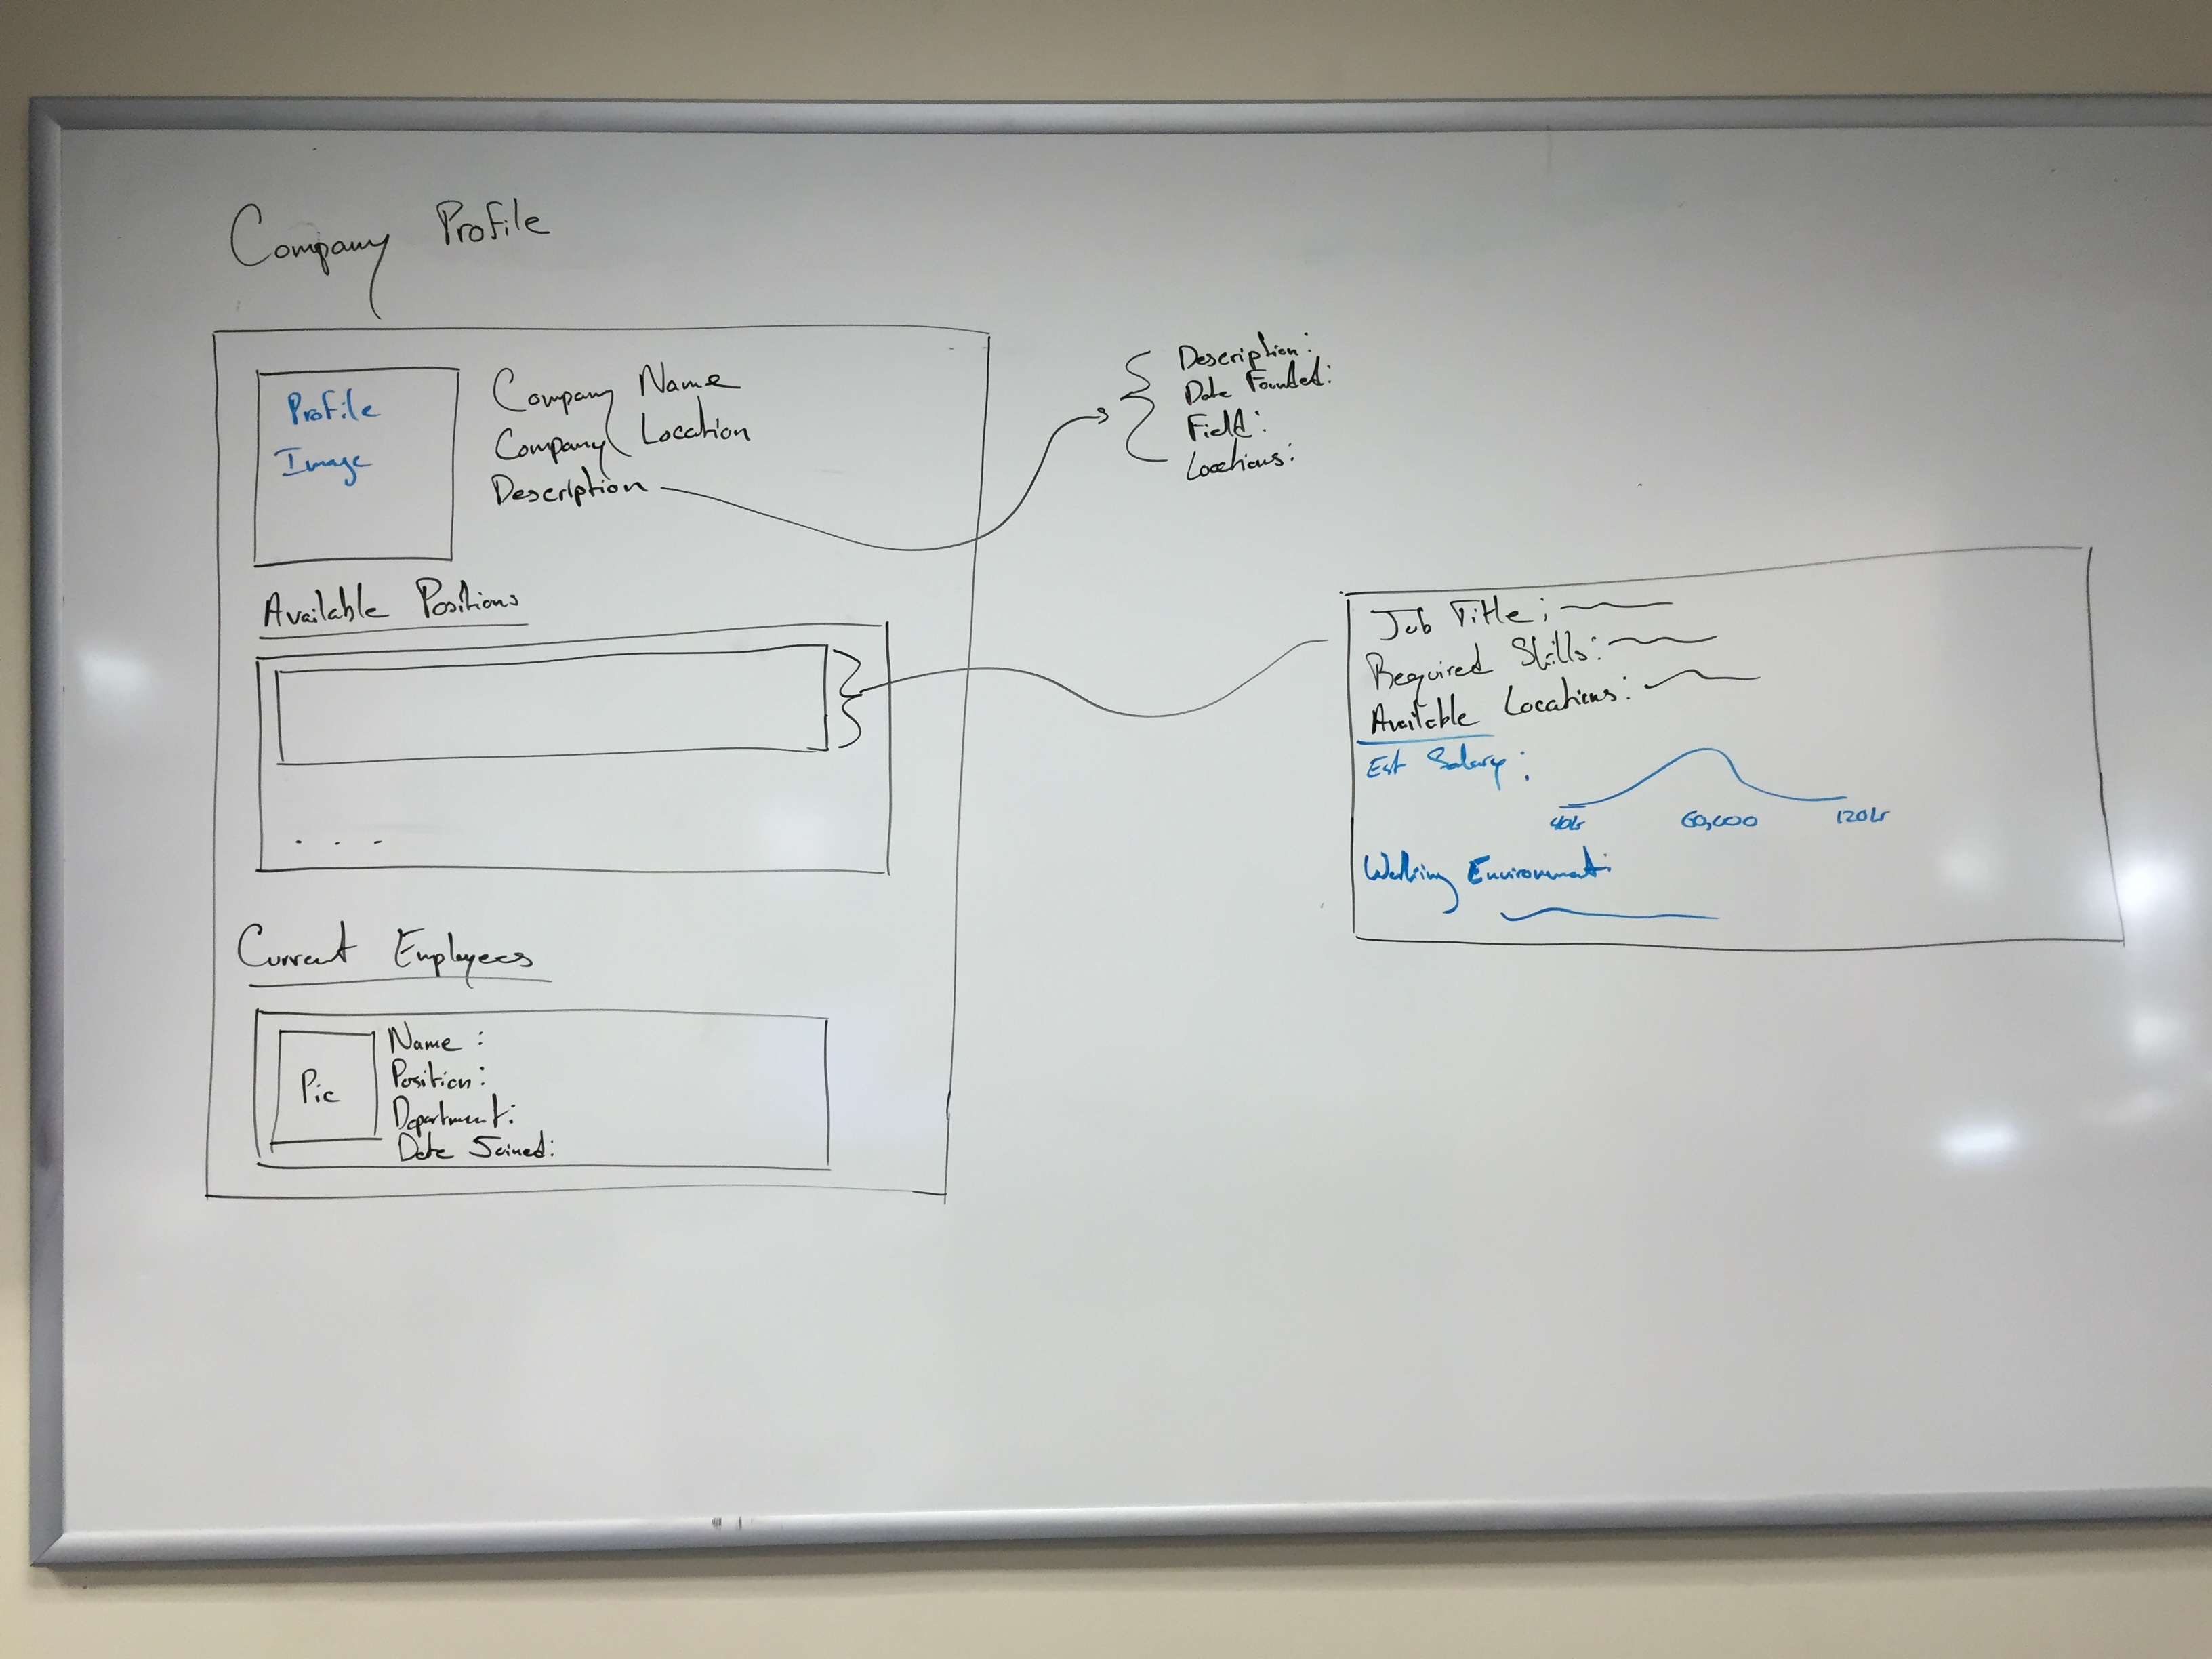 Company Profile
Profile
Image
Company Name
Company Location
Description
Description:
Date Founded:
Field:
Locations:
Available Positions
. . .
Job Title:
Required Skills:
Available Locations:
Est Salary:
40k 60,000 120k
Working Environment:
Current Employees
Pic
Name :
Position:
Department:
Date Joined: